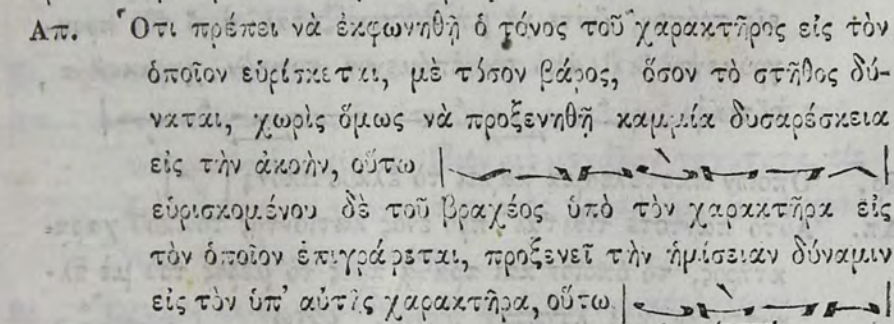 Απ. Ὅτι πρέπει νὰ ἐκφωνηθῇ ὁ τόνος τοῦ χαρακτῆρος εἰς τὸν
ὁποῖον εὑρίσκεται, μὲ τόσον βάρος, ὅσον τὸ στῆθος δύ-
ναται, χωρὶς ὅμως νὰ προξενηθῇ καμμία δυσαρέσκεια
εἰς τὴν ἀκοὴν, οὕτω
εὑρισκομένου δὲ τοῦ βραχέος ὑπὸ τὸν χαρακτῆρα εἰς
τὸν ὁποῖον ἐπιγράφεται, προξενεῖ τὴν ἡμίσειαν δύναμιν
εἰς τὸν ὑπ' αὐτὸς χαρακτῆρα, οὕτω